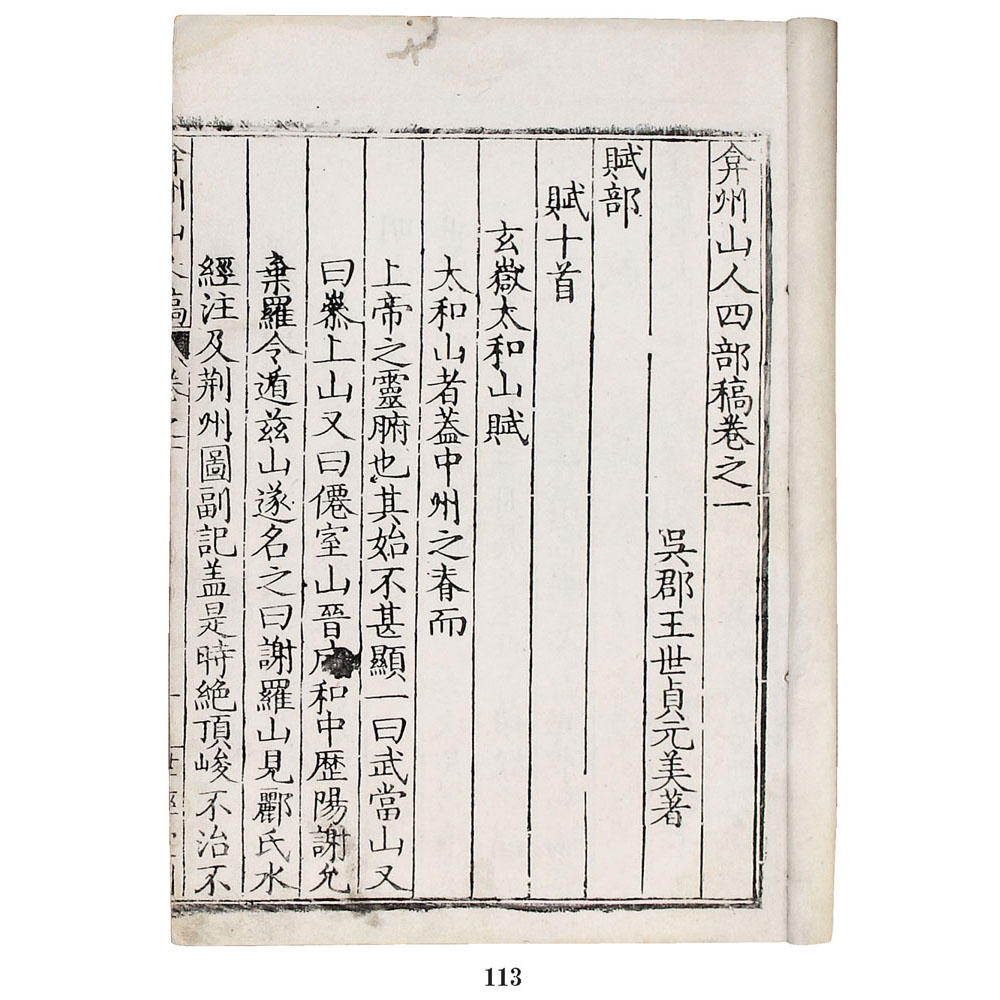 弇州山人四部稿卷之一
吳郡王世貞元美著
賦部
賦十首
玄嶽太和山賦
太和山者蓋中州之春而
上帝之靈腑也其始不甚顯一曰武當山又
曰嵾上山又曰僊室山晉咸和中歴陽謝允
棄羅令遁兹山遂名之曰謝羅山見酈氏水
經注及荆州圖副記盖是時絶頂峻不治不
弇州山人稿 卷之一 一 世經堂刊
113